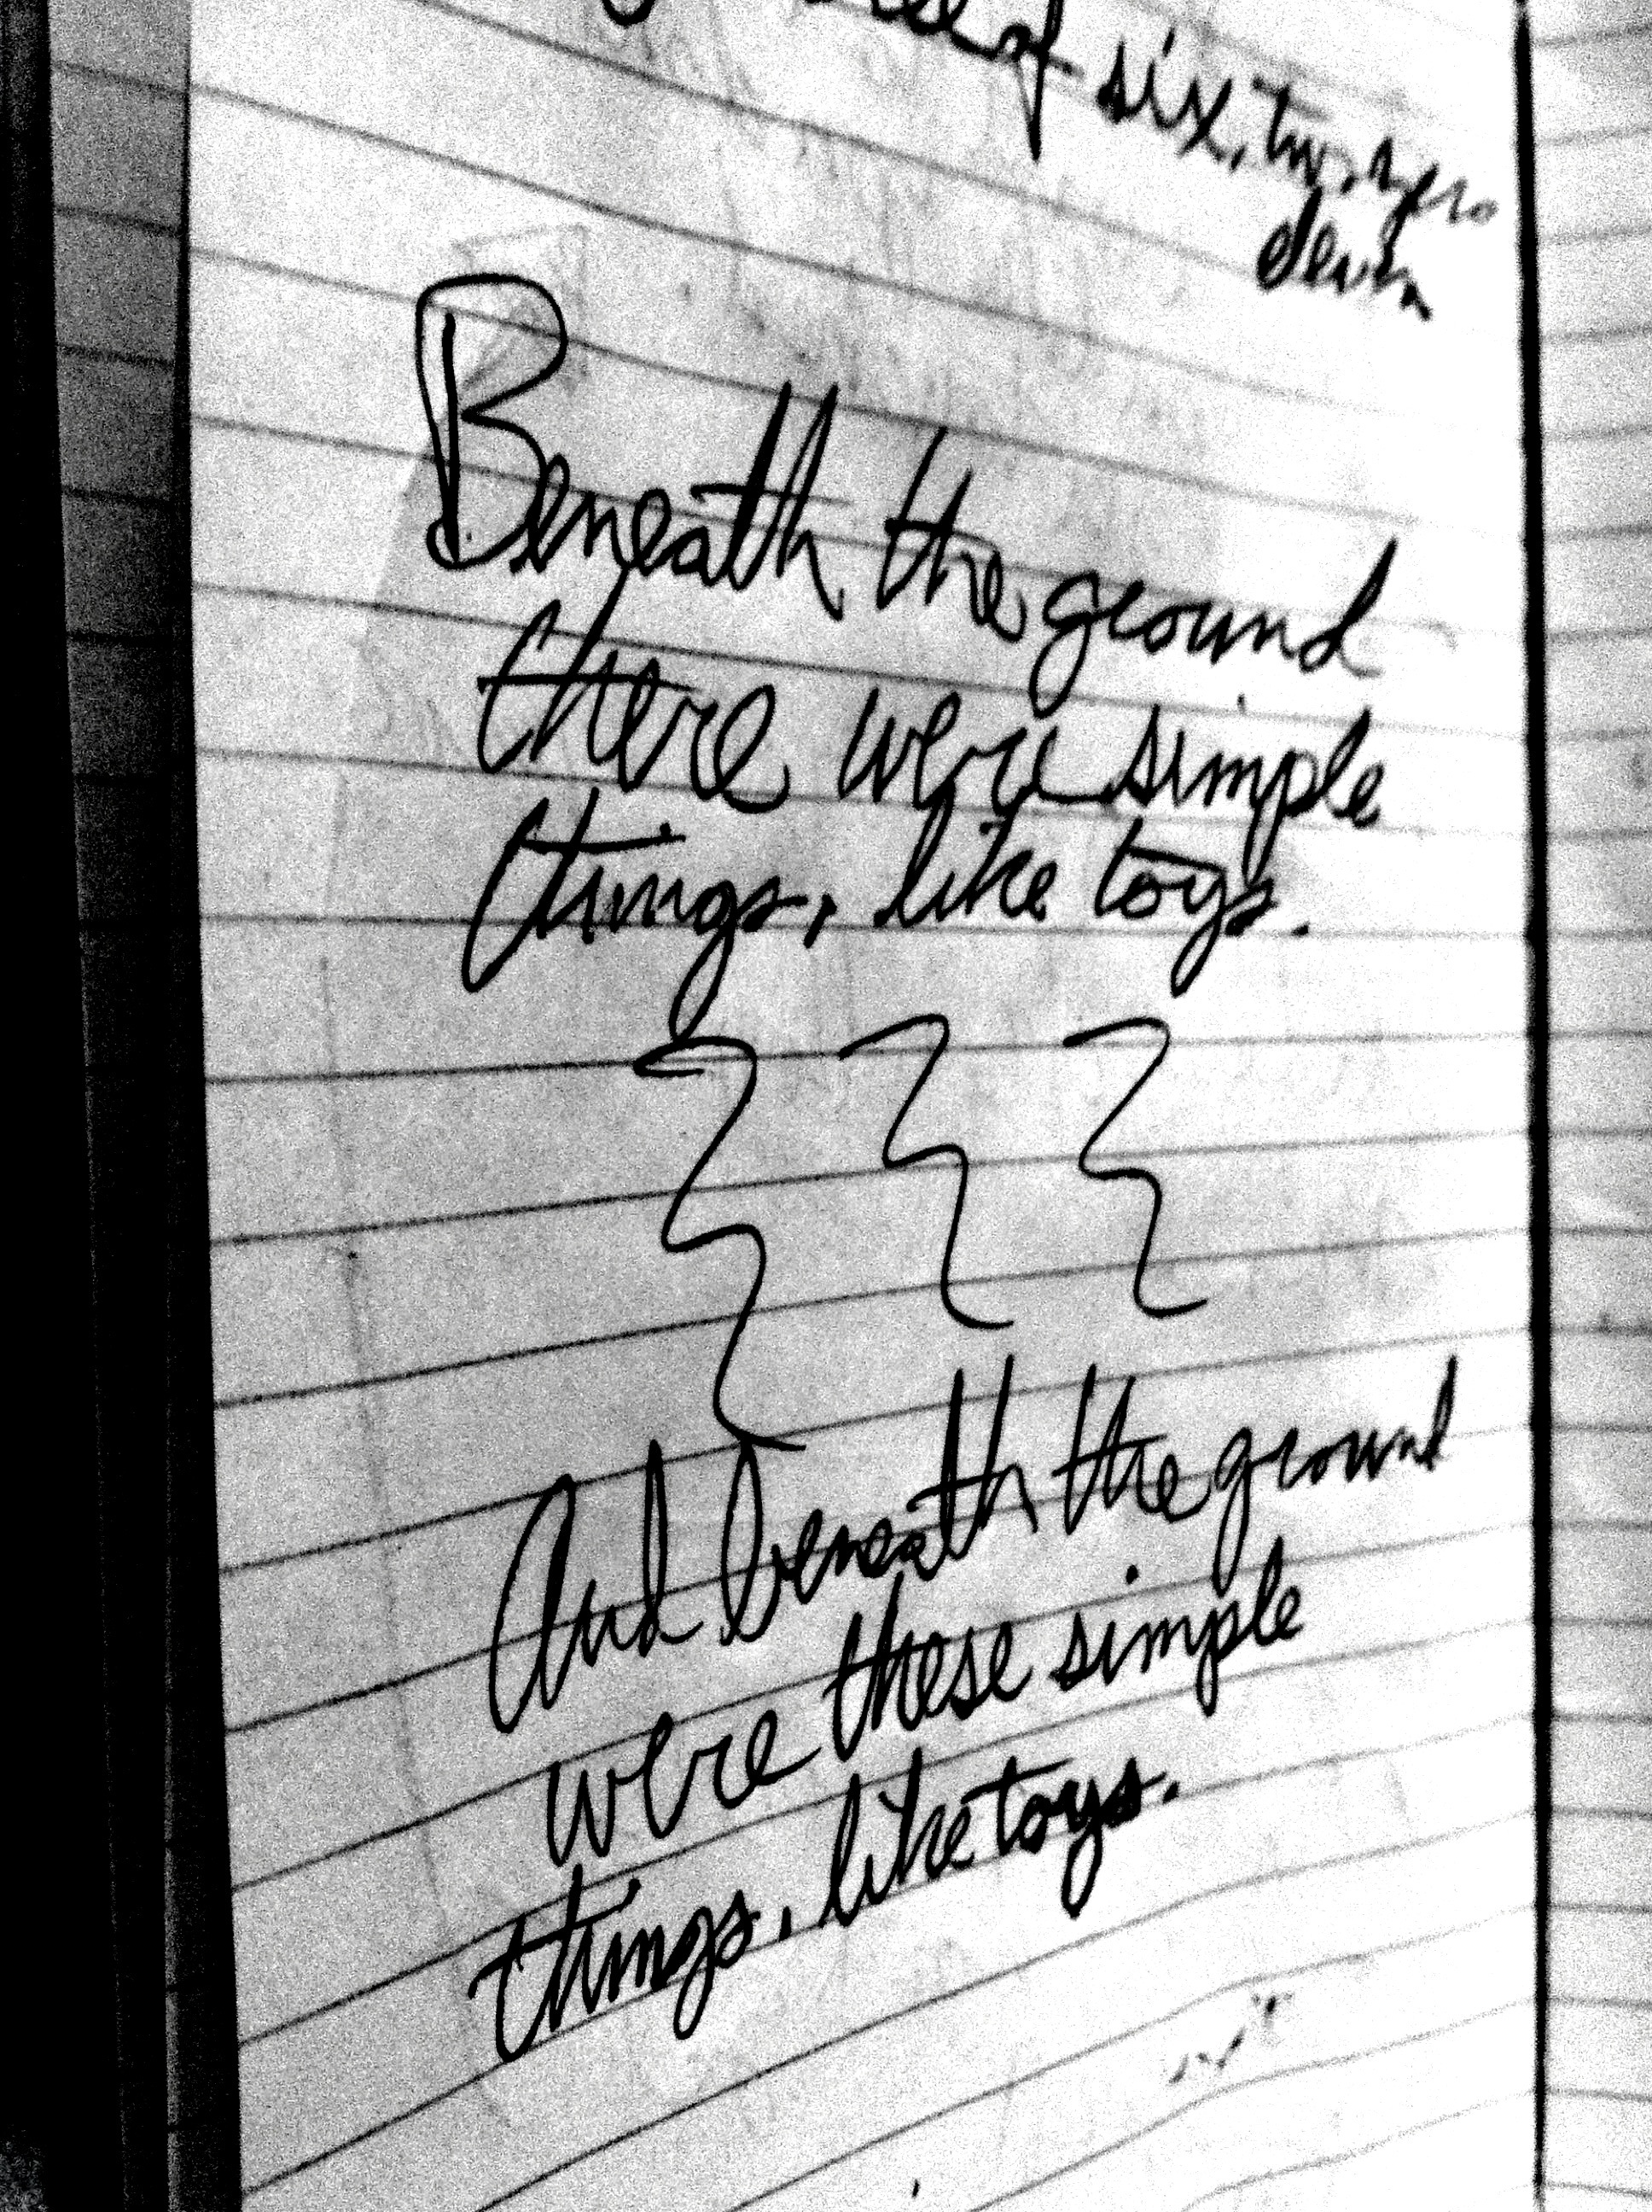 of six, two, zero
down
Beneath the ground
there were simple
things, like toys.
And beneath the ground
were these simple
things, like toys.